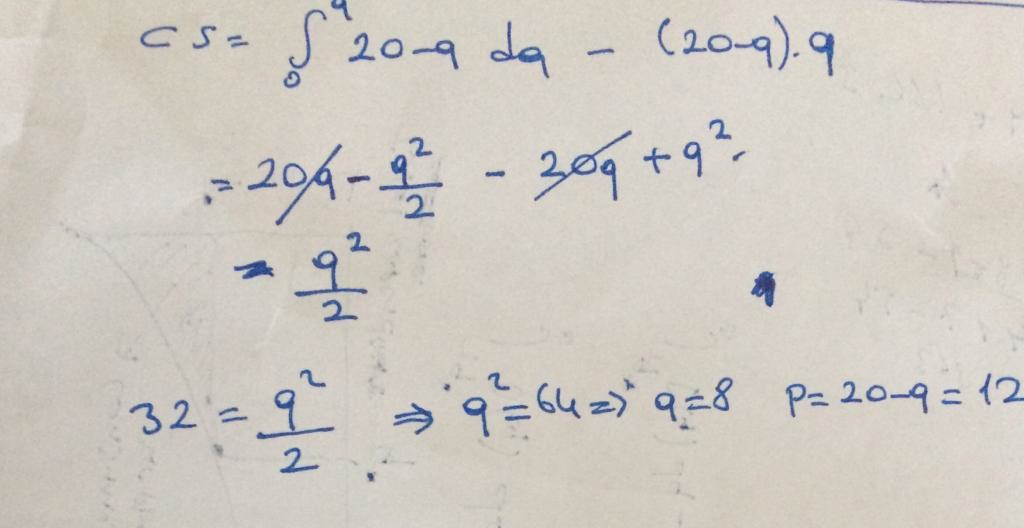 CS = ∫₀^q 20-q dq - (20-q).q
= 20q - q²/2 - 20q + q²
= q²/2
32 = q²/2 ⇒ q² = 64 ⇒ q = 8 P = 20-q = 12